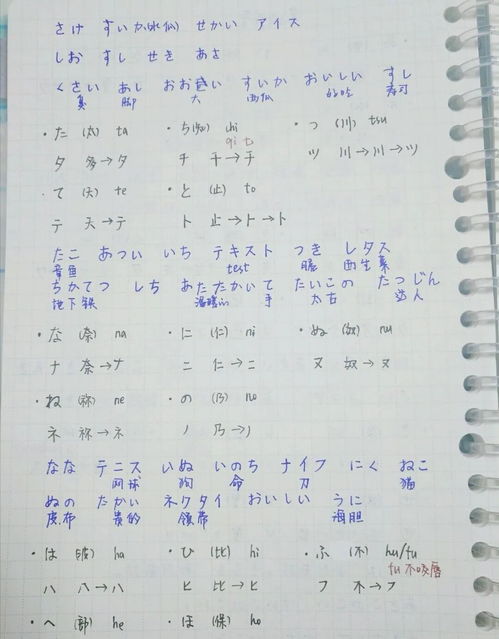 さけ すいか(水仙) せかい アイス
しお すし せき あさ
くさい あし おお盛い すいか おいしい すし
臭 脚 大 西瓜 好吃 寿司
・た (太) ta ・ち(知) chi ・つ (川) tsu
qi ti
タ 多→タ チ 千→チ ツ 川→川→ツ
・て (天) te ・と (止) to
テ 天→テ ト 止→ト→ト
たこ あつい いち テキスト つき レタス
章鱼 test 月 西生菜
ちかてつ しち あたたかい て たいこの たつじん
地下鉄 温暖 手 太古 达人
・な (奈) na ・に (仁) ni ・ぬ (奴) nu
ナ 奈→ナ ニ 仁→ニ ヌ 奴→ヌ
・ね (祢) ne ・の (乃) no
ネ 祢→ネ ノ 乃→ノ
なな テニス いぬ いのち ナイフ にく ねこ
网球 狗 命 刀 猫
ぬの たかい ネクタイ おいしい うに
麻布 贵的 领带 海胆
・は (波) ha ・ひ (比) hi ・ふ (不) hu/fu
fu 不咬唇
ハ 八→ハ ヒ 比→ヒ フ 不→フ
・へ (部) he ・ほ (保) ho